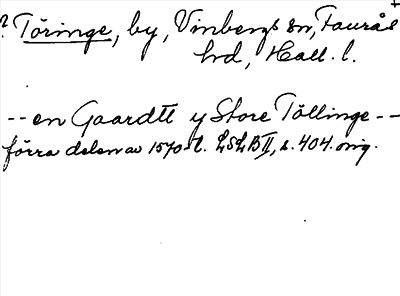 ? Töringe, by, Vinbergs sn, Faurås
hd, Hall. l.
-- en Gaardtt y Store Töllinge --
förra delen av 1570-t. LSLB II, s. 404. orig.